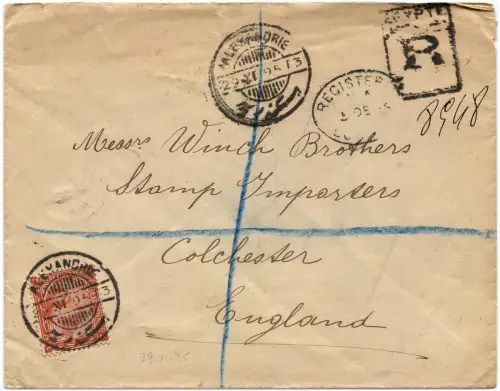 EGYPTE
R
ALEXANDRIE
29 XI 95 T3
REGISTERED
8948
Messrs Winch Brothers
Stamp Importers
Colchester
England
ALEXANDRIE
XI 95
29.XI.95